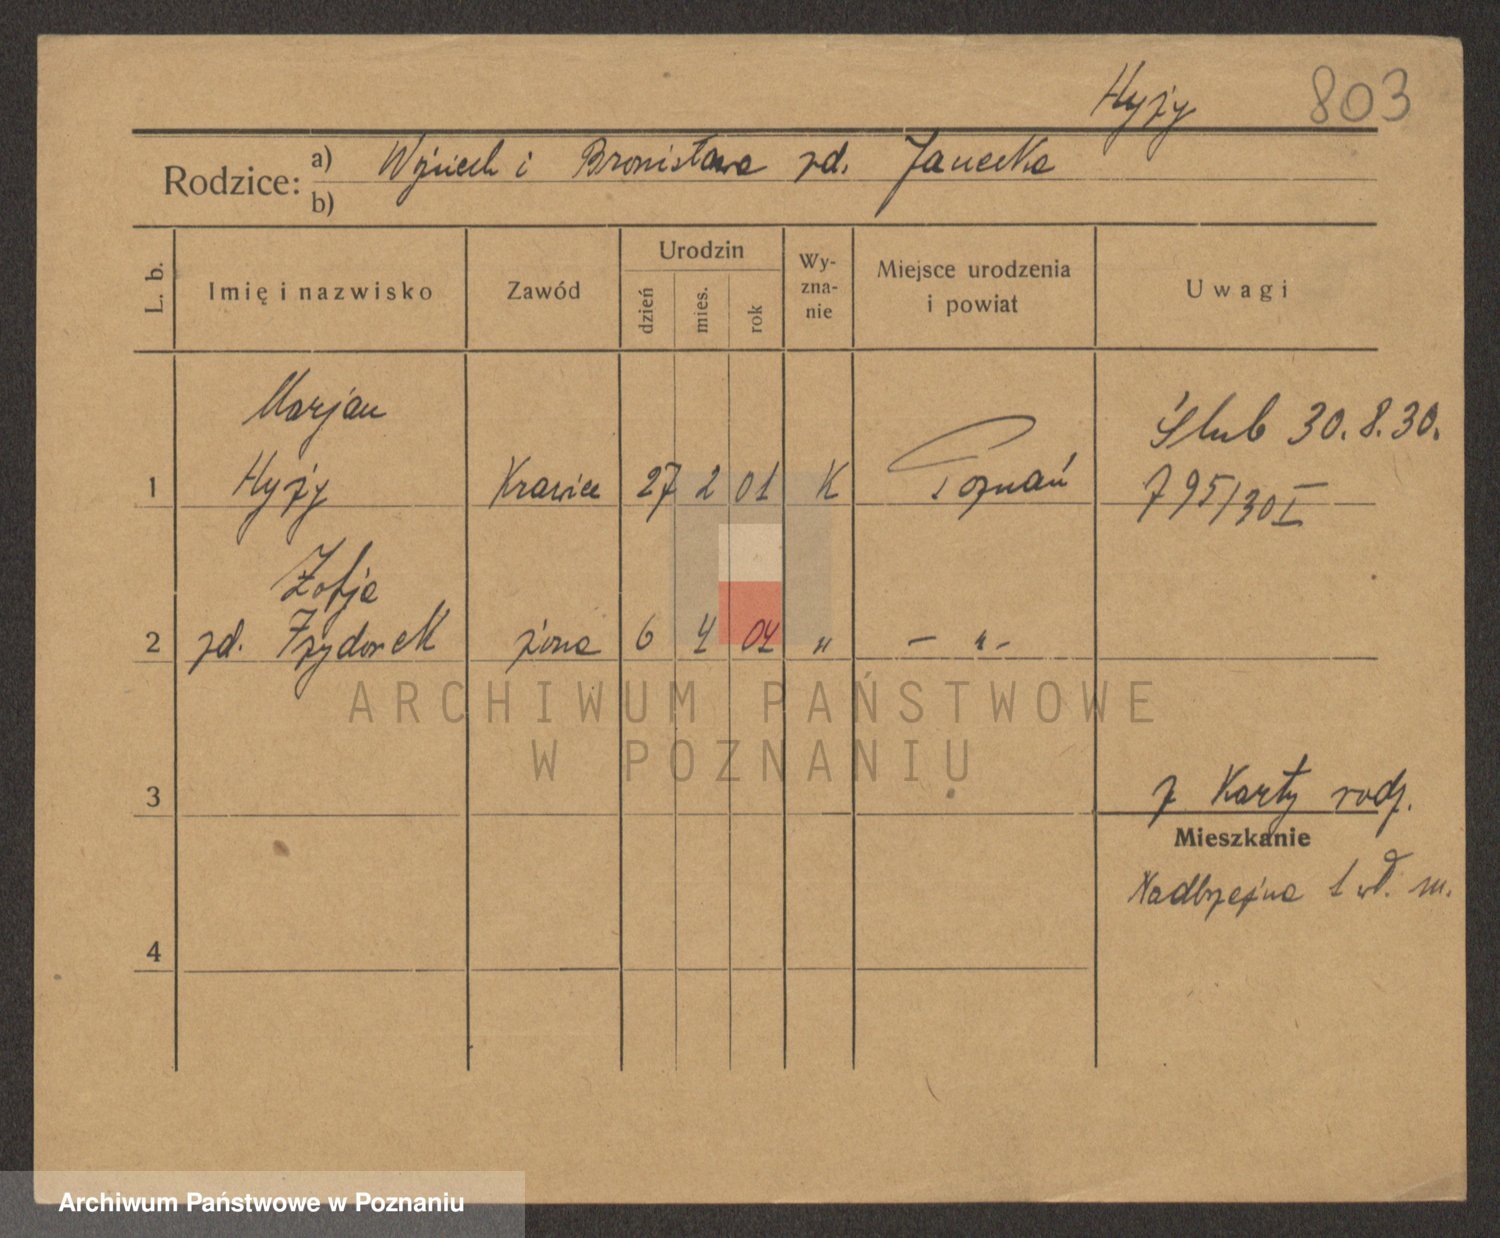 Hyży 803
Rodzice: a) Wojciech i Bronisława zd. Janecka
b)
L. b. Imię i nazwisko Zawód Urodzin dzień mies. rok Wy-zna-nie Miejsce urodzenia i powiat Uwagi
Marjan
1 Hyży Krawiec 27 2 01 K Poznań Ślub 30.8.30.
795/30 I
Zofja
2 zd. żona 6 4 04 „ – „ –
3 z Karty rodz.
Mieszkanie
Nadbrzeżna 1 wł. m.
4
ARCHIWUM PAŃSTWOWE
W POZNANIU
Archiwum Państwowe w Poznaniu